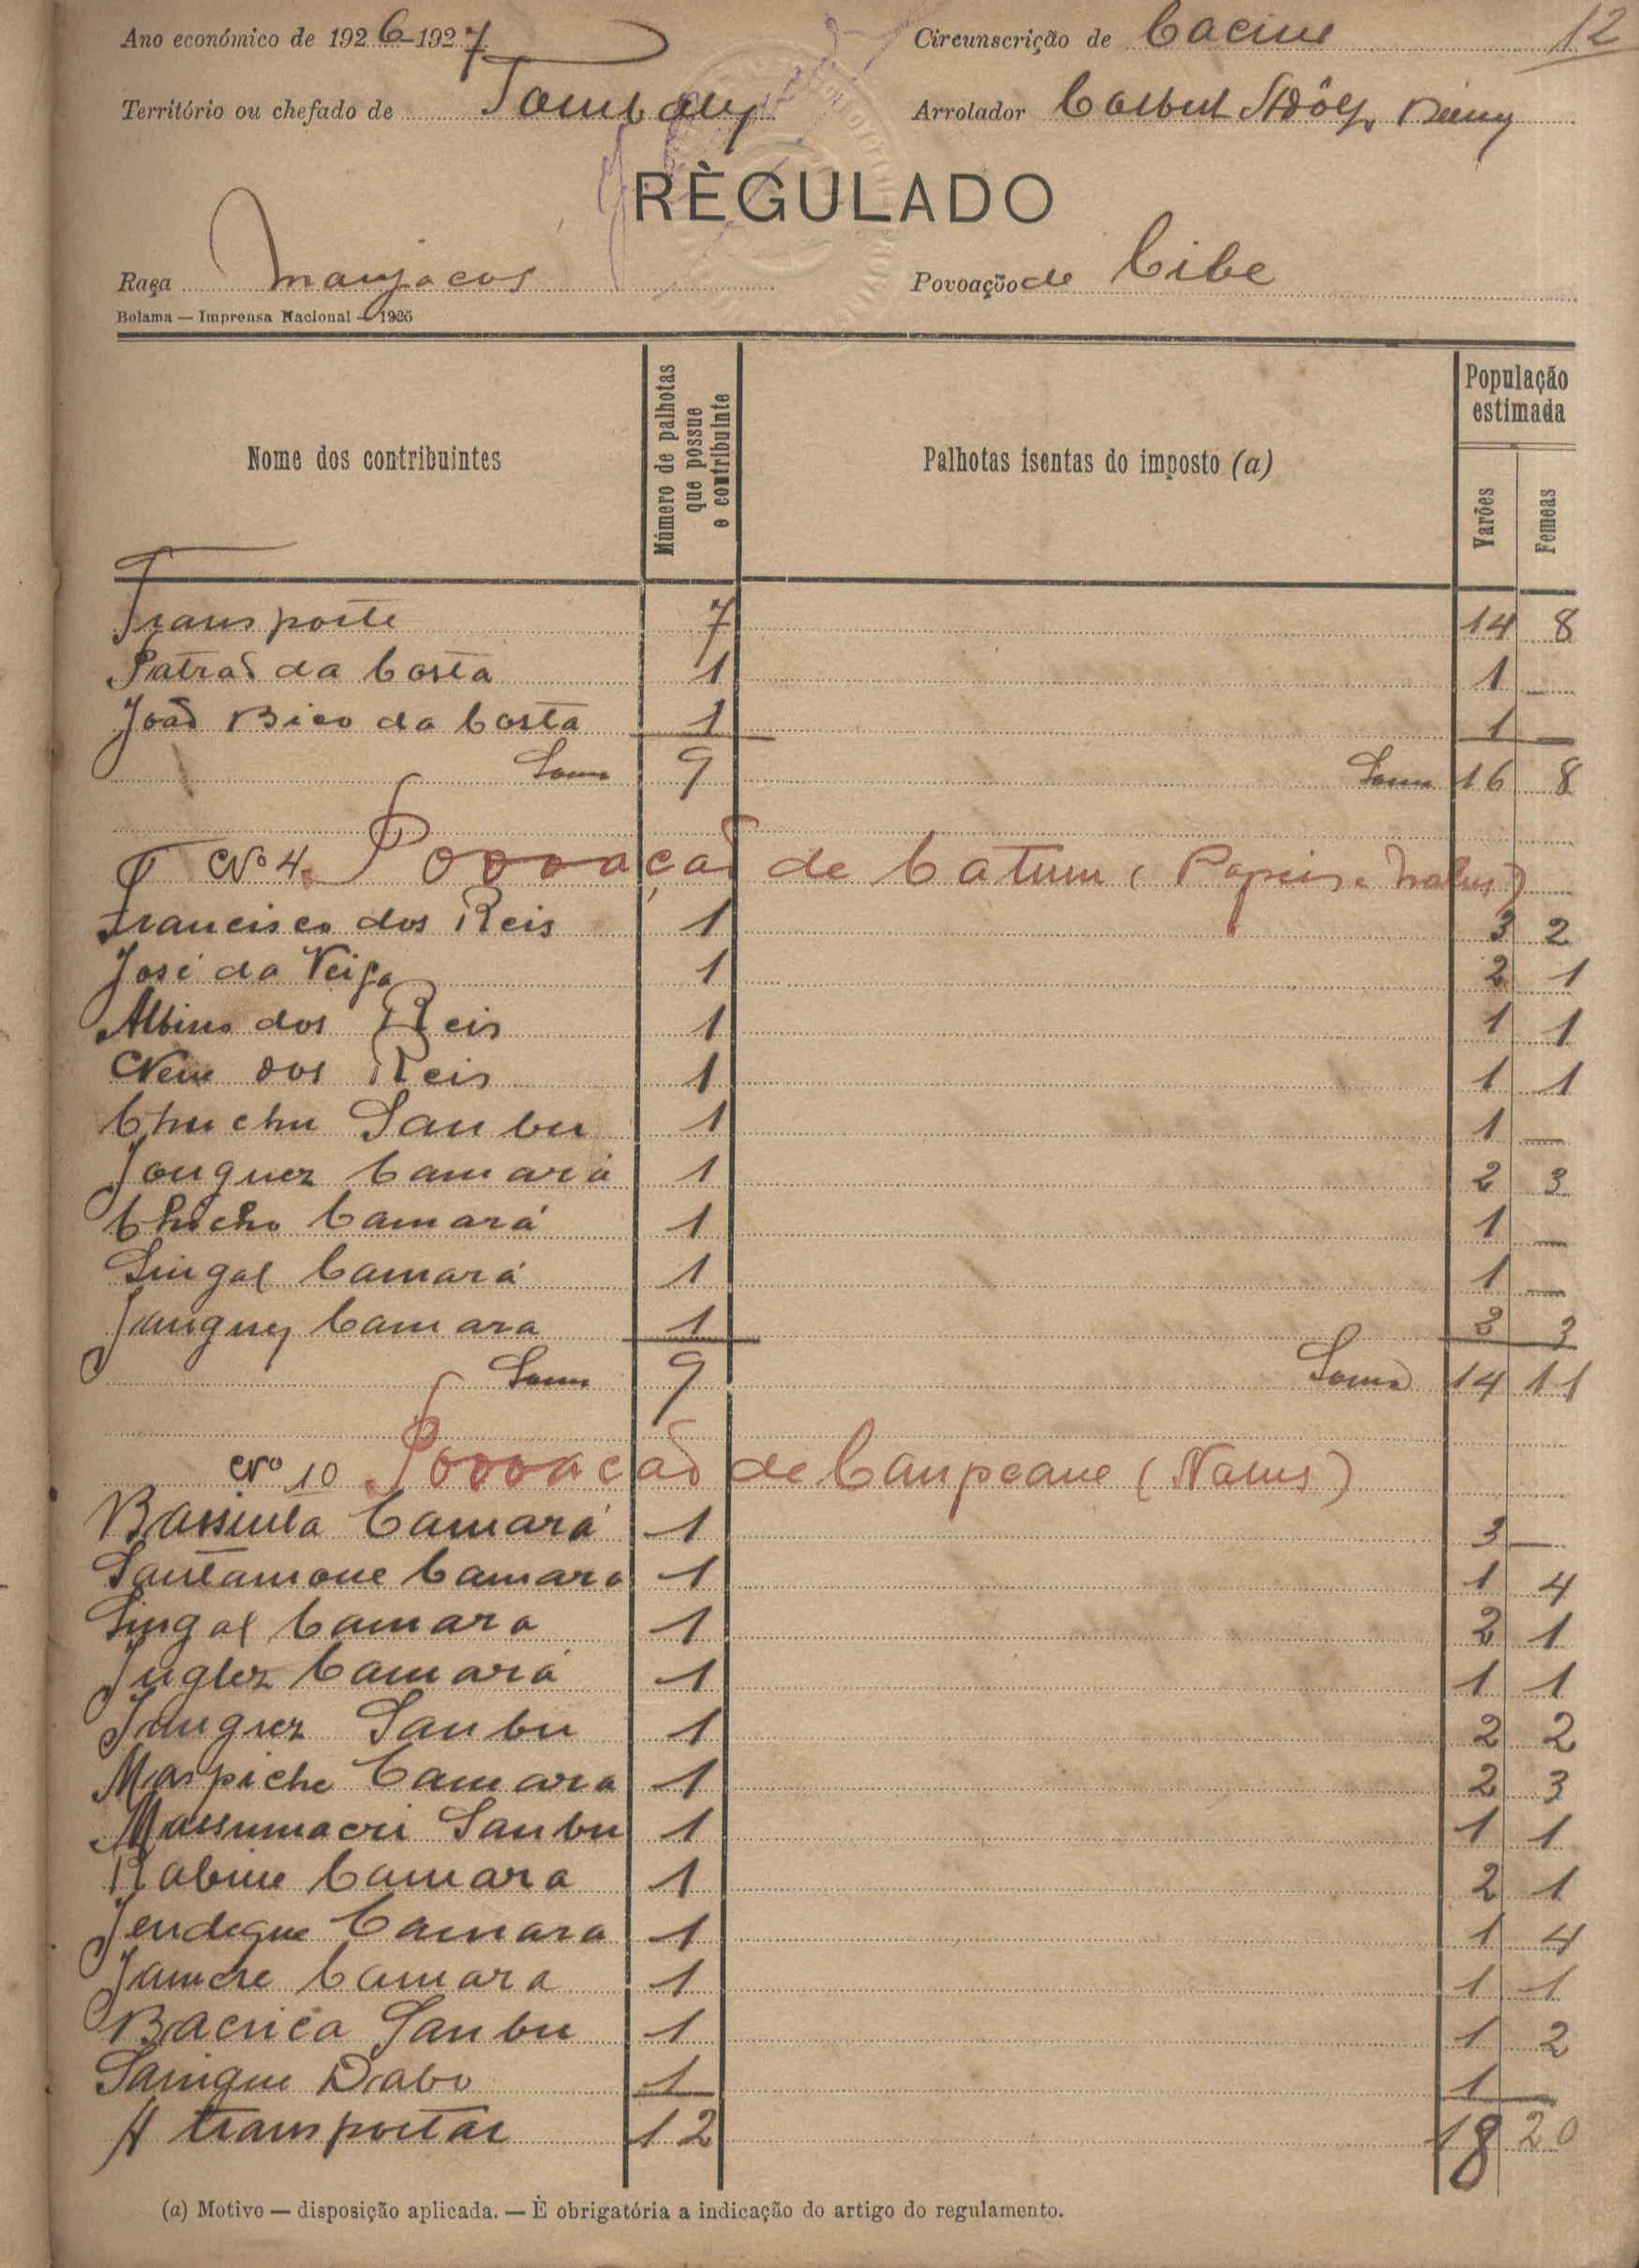 Ano económico de 1926-1927 Circunscrição de Cacine 12
Território ou chefado de Tombaly Arrolador
RÈGULADO
Raça Manjacos Povoação de Cibe
Bolama — Imprensa Nacional — 1925
Nome dos contribuintes Número de palhotas que possue o contribuinte Palhotas isentas do imposto (a) População estimada Varões Femeas
Transporte 7 14 8
Patrão da Costa 1 1 —
João Bico da Costa 1 1 —
Soma 9 Soma 16 8
Nº 4. Povoação de Catum (Papeis e Nalus)
Francisco dos Reis 1 3 2
José da Veiga 1 2 1
Albino dos Reis 1 1 1
Nene dos Reis 1 1 1
Chuchu Sanbu 1 1 —
Jonguez Camará 1 2 3
Chicho Camará 1 1 —
Singal Camará 1 1 —
Janguey Camara 1 2 3
Soma 9 Soma 14 11
Nº 10 Povoação de Campeane (Nalus)
Bassinta Camará 1 3 —
Santamone Camara 1 1 4
Singal Camara 1 2 1
Juglez Camará 1 1 1
Janguez Sanbu 1 2 2
Maspiche Camara 1 2 3
Massumacri Sanbu 1 1 1
Rabine Camara 1 2 1
Jendegue Camara 1 1 4
Jamdre Camara 1 1 1
Bacrica Sanbu 1 1 2
Sanigue Dabo 1 1 —
A transportar 12 18 20
(a) Motivo — disposição aplicada. — È obrigatória a indicação do artigo do regulamento.